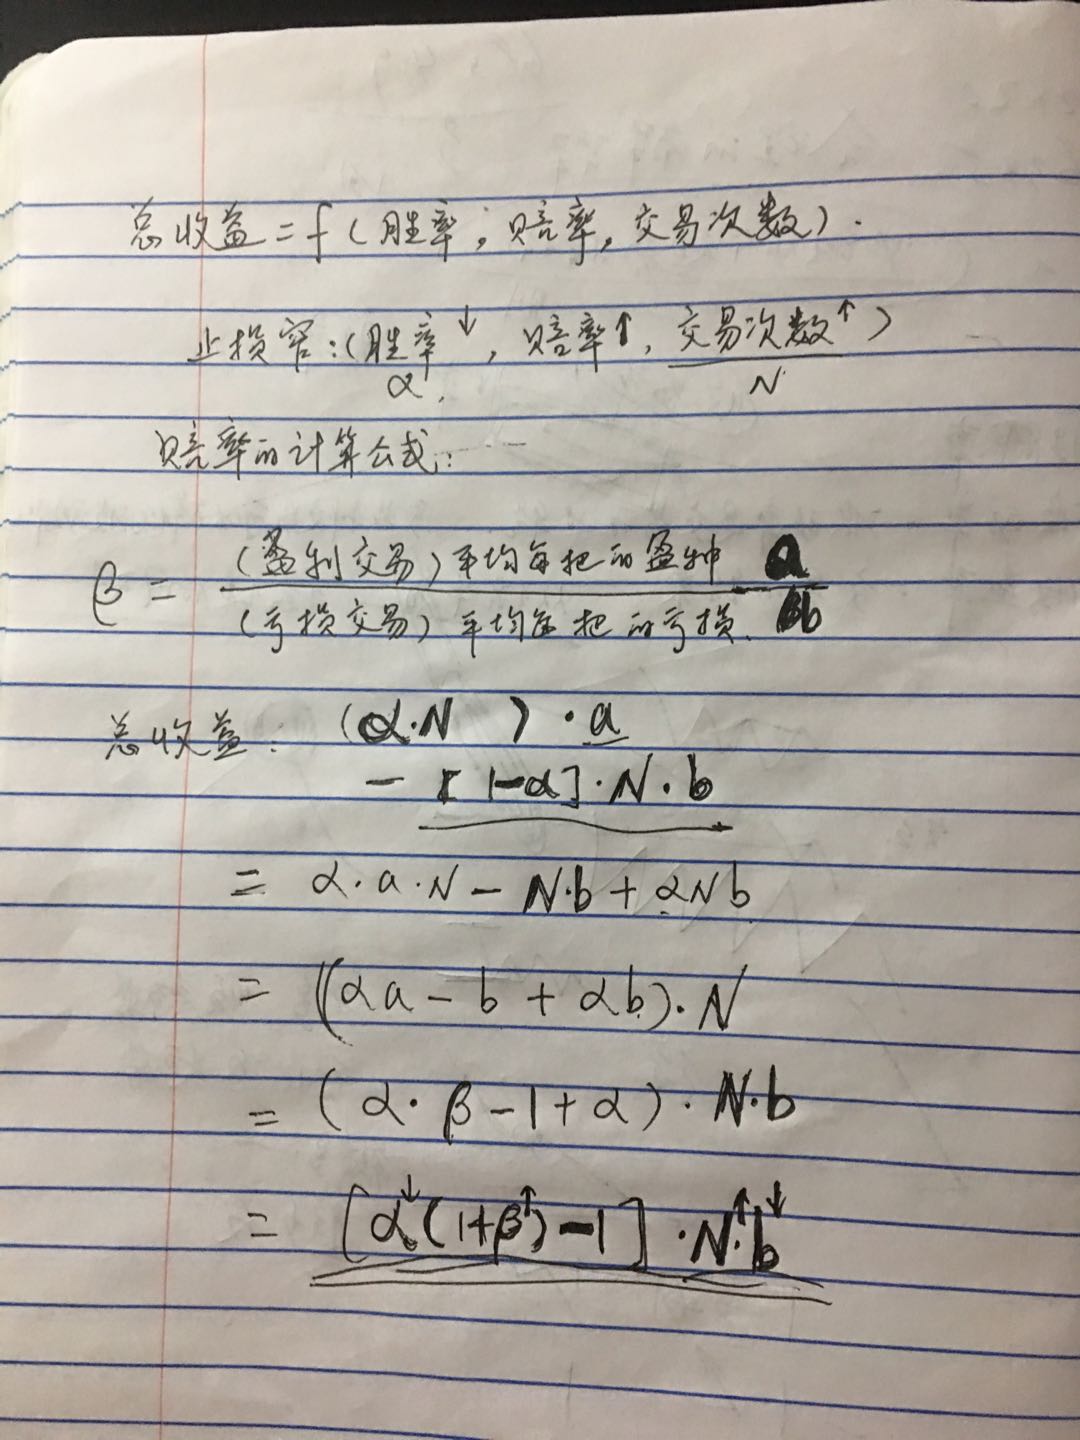 总收益 = f (胜率, 赔率, 交易次数).
止损窄: (胜率↓, 赔率↑, 交易次数↑)
α. N
赔率的计算公式:
β = (盈利交易) 平均每把的盈利 a
(亏损交易) 平均每把的亏损. b
总收益: (α·N ) · a
- [1-α]·N·b
= α·a·N - N·b + αNb
= (αa - b + αb)·N
= (α·β - 1 + α)·N·b
= [α↓(1+β↑) - 1]·N↑·b↓